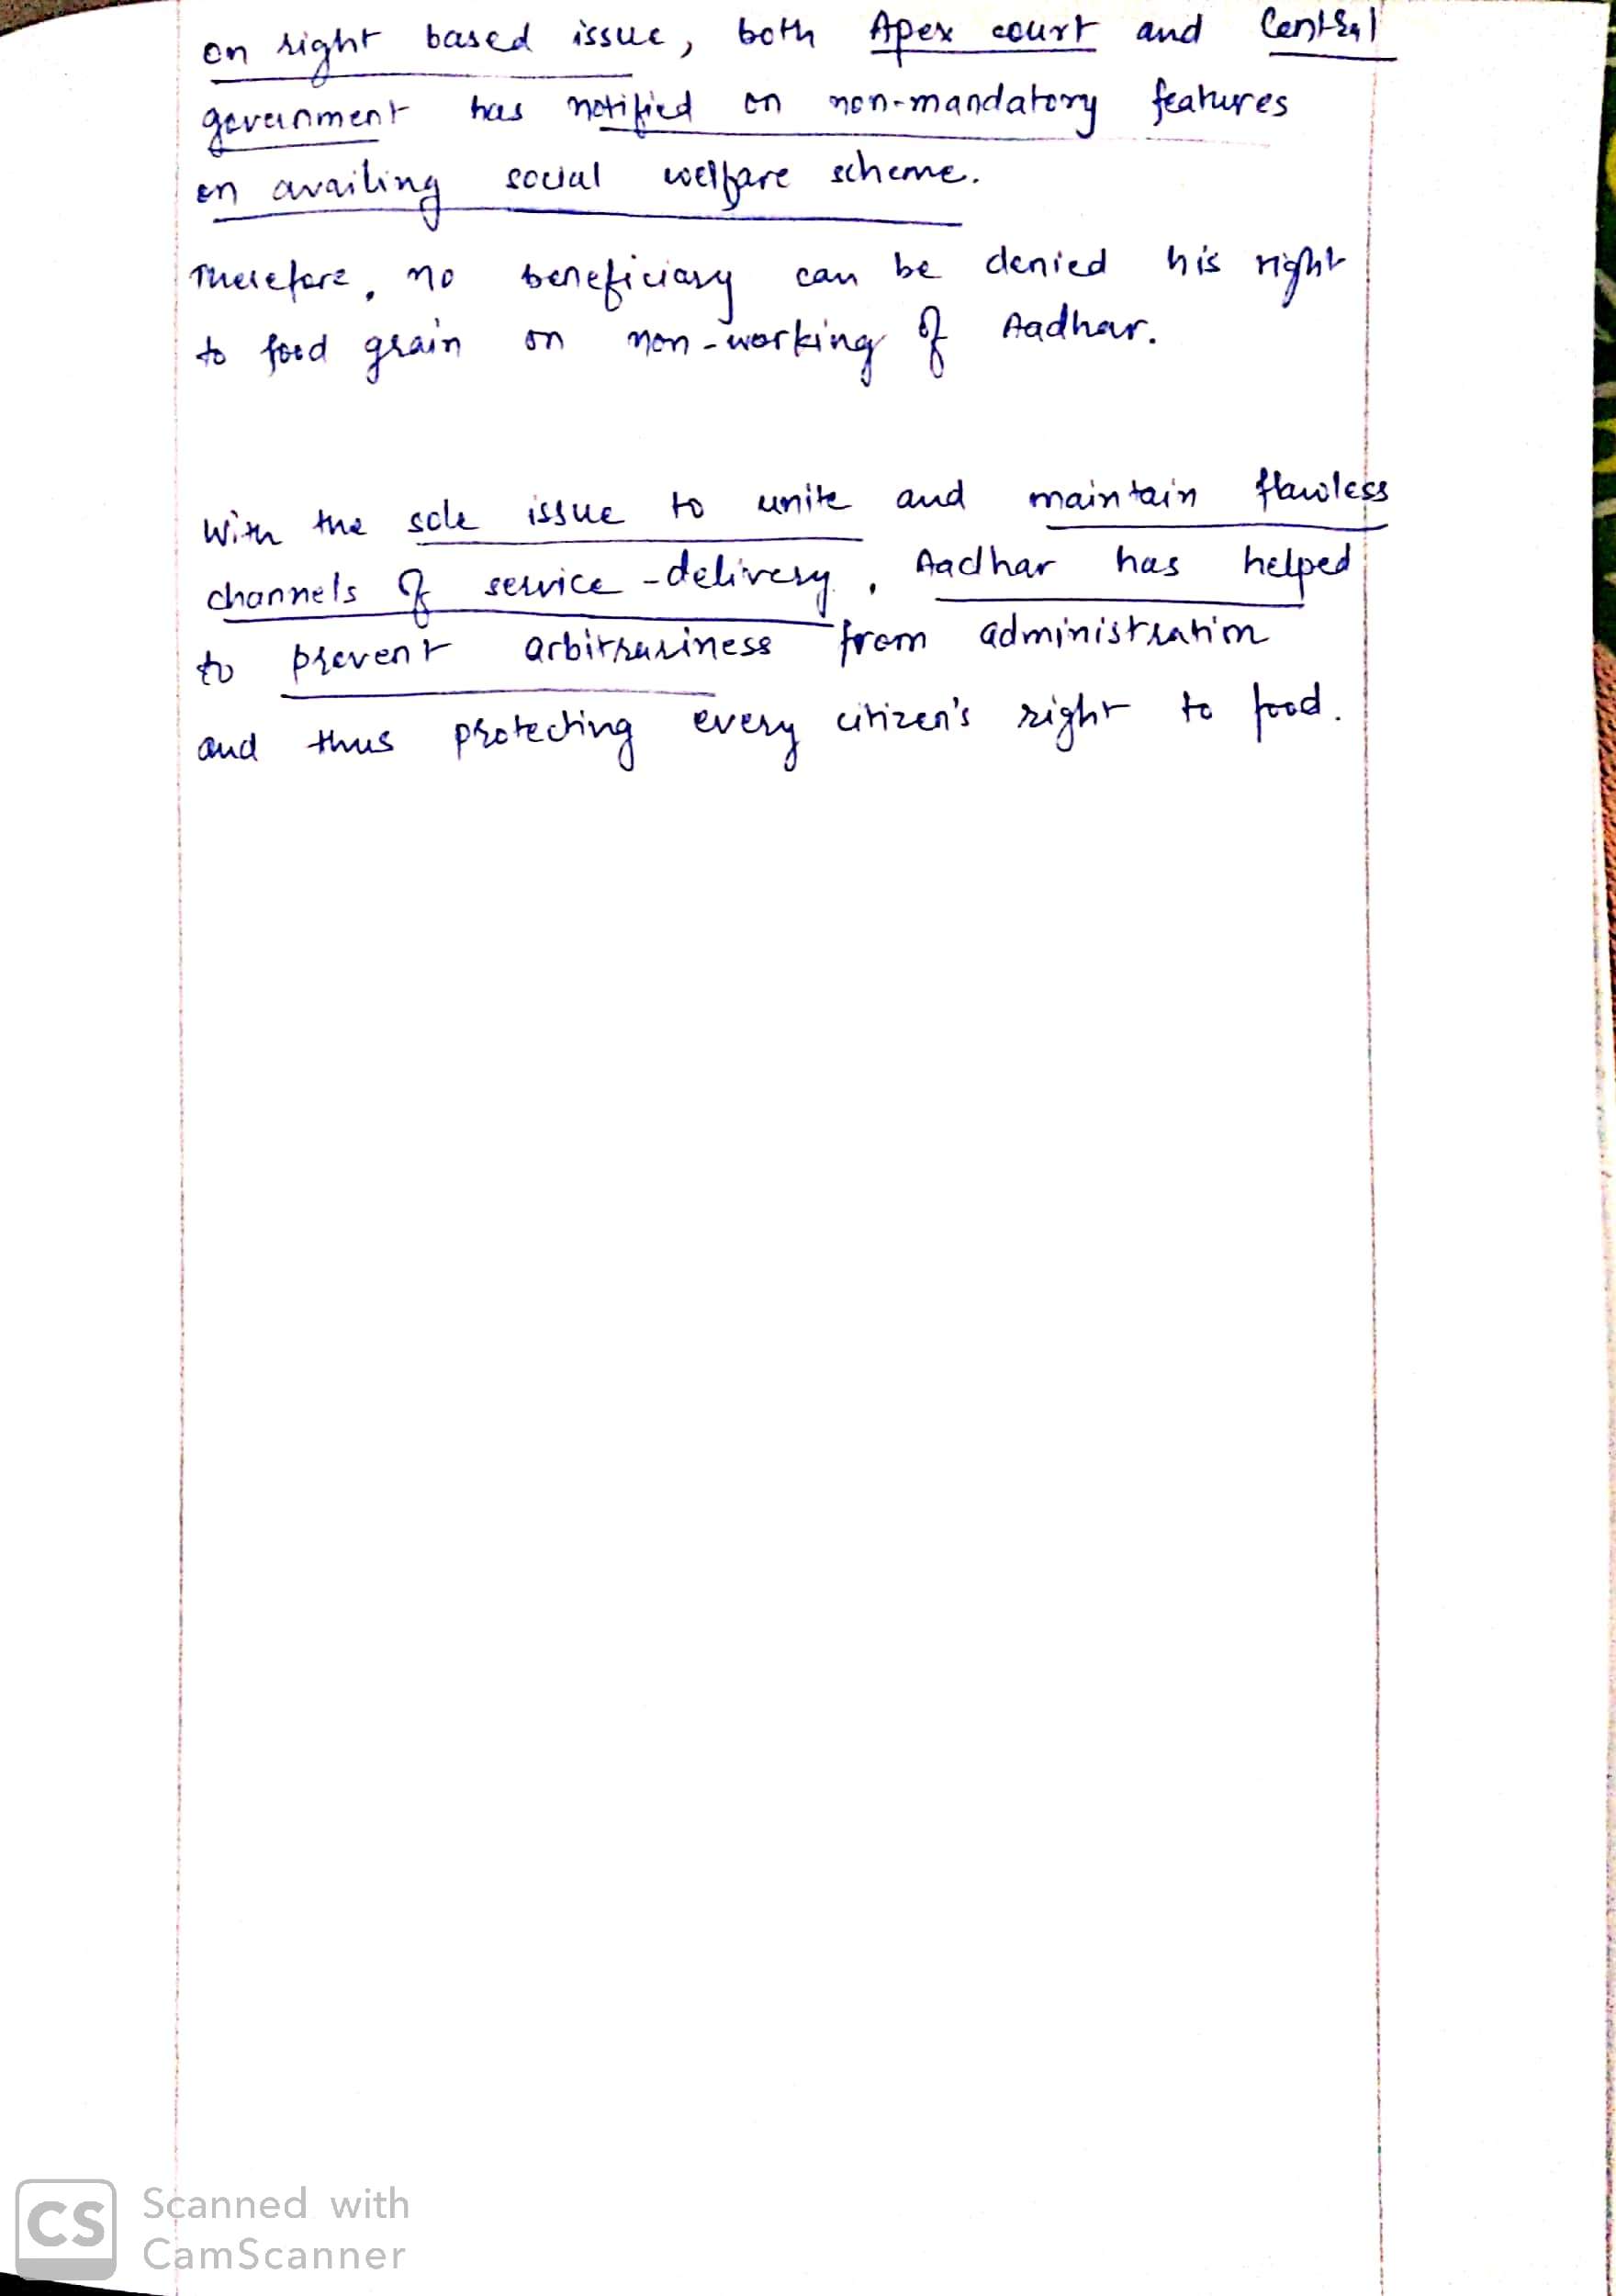 on right based issue, both Apex court and Central
government has notified on non-mandatory features
on availing social welfare scheme.
Therefore, no beneficiary can be denied his right
to food grain on non-working of Aadhar.
With the sole issue to unite and maintain flawless
channels of service-delivery, Aadhar has helped
to prevent arbitrariness from administration
and thus protecting every citizen's right to food.
CS Scanned with
CamScanner